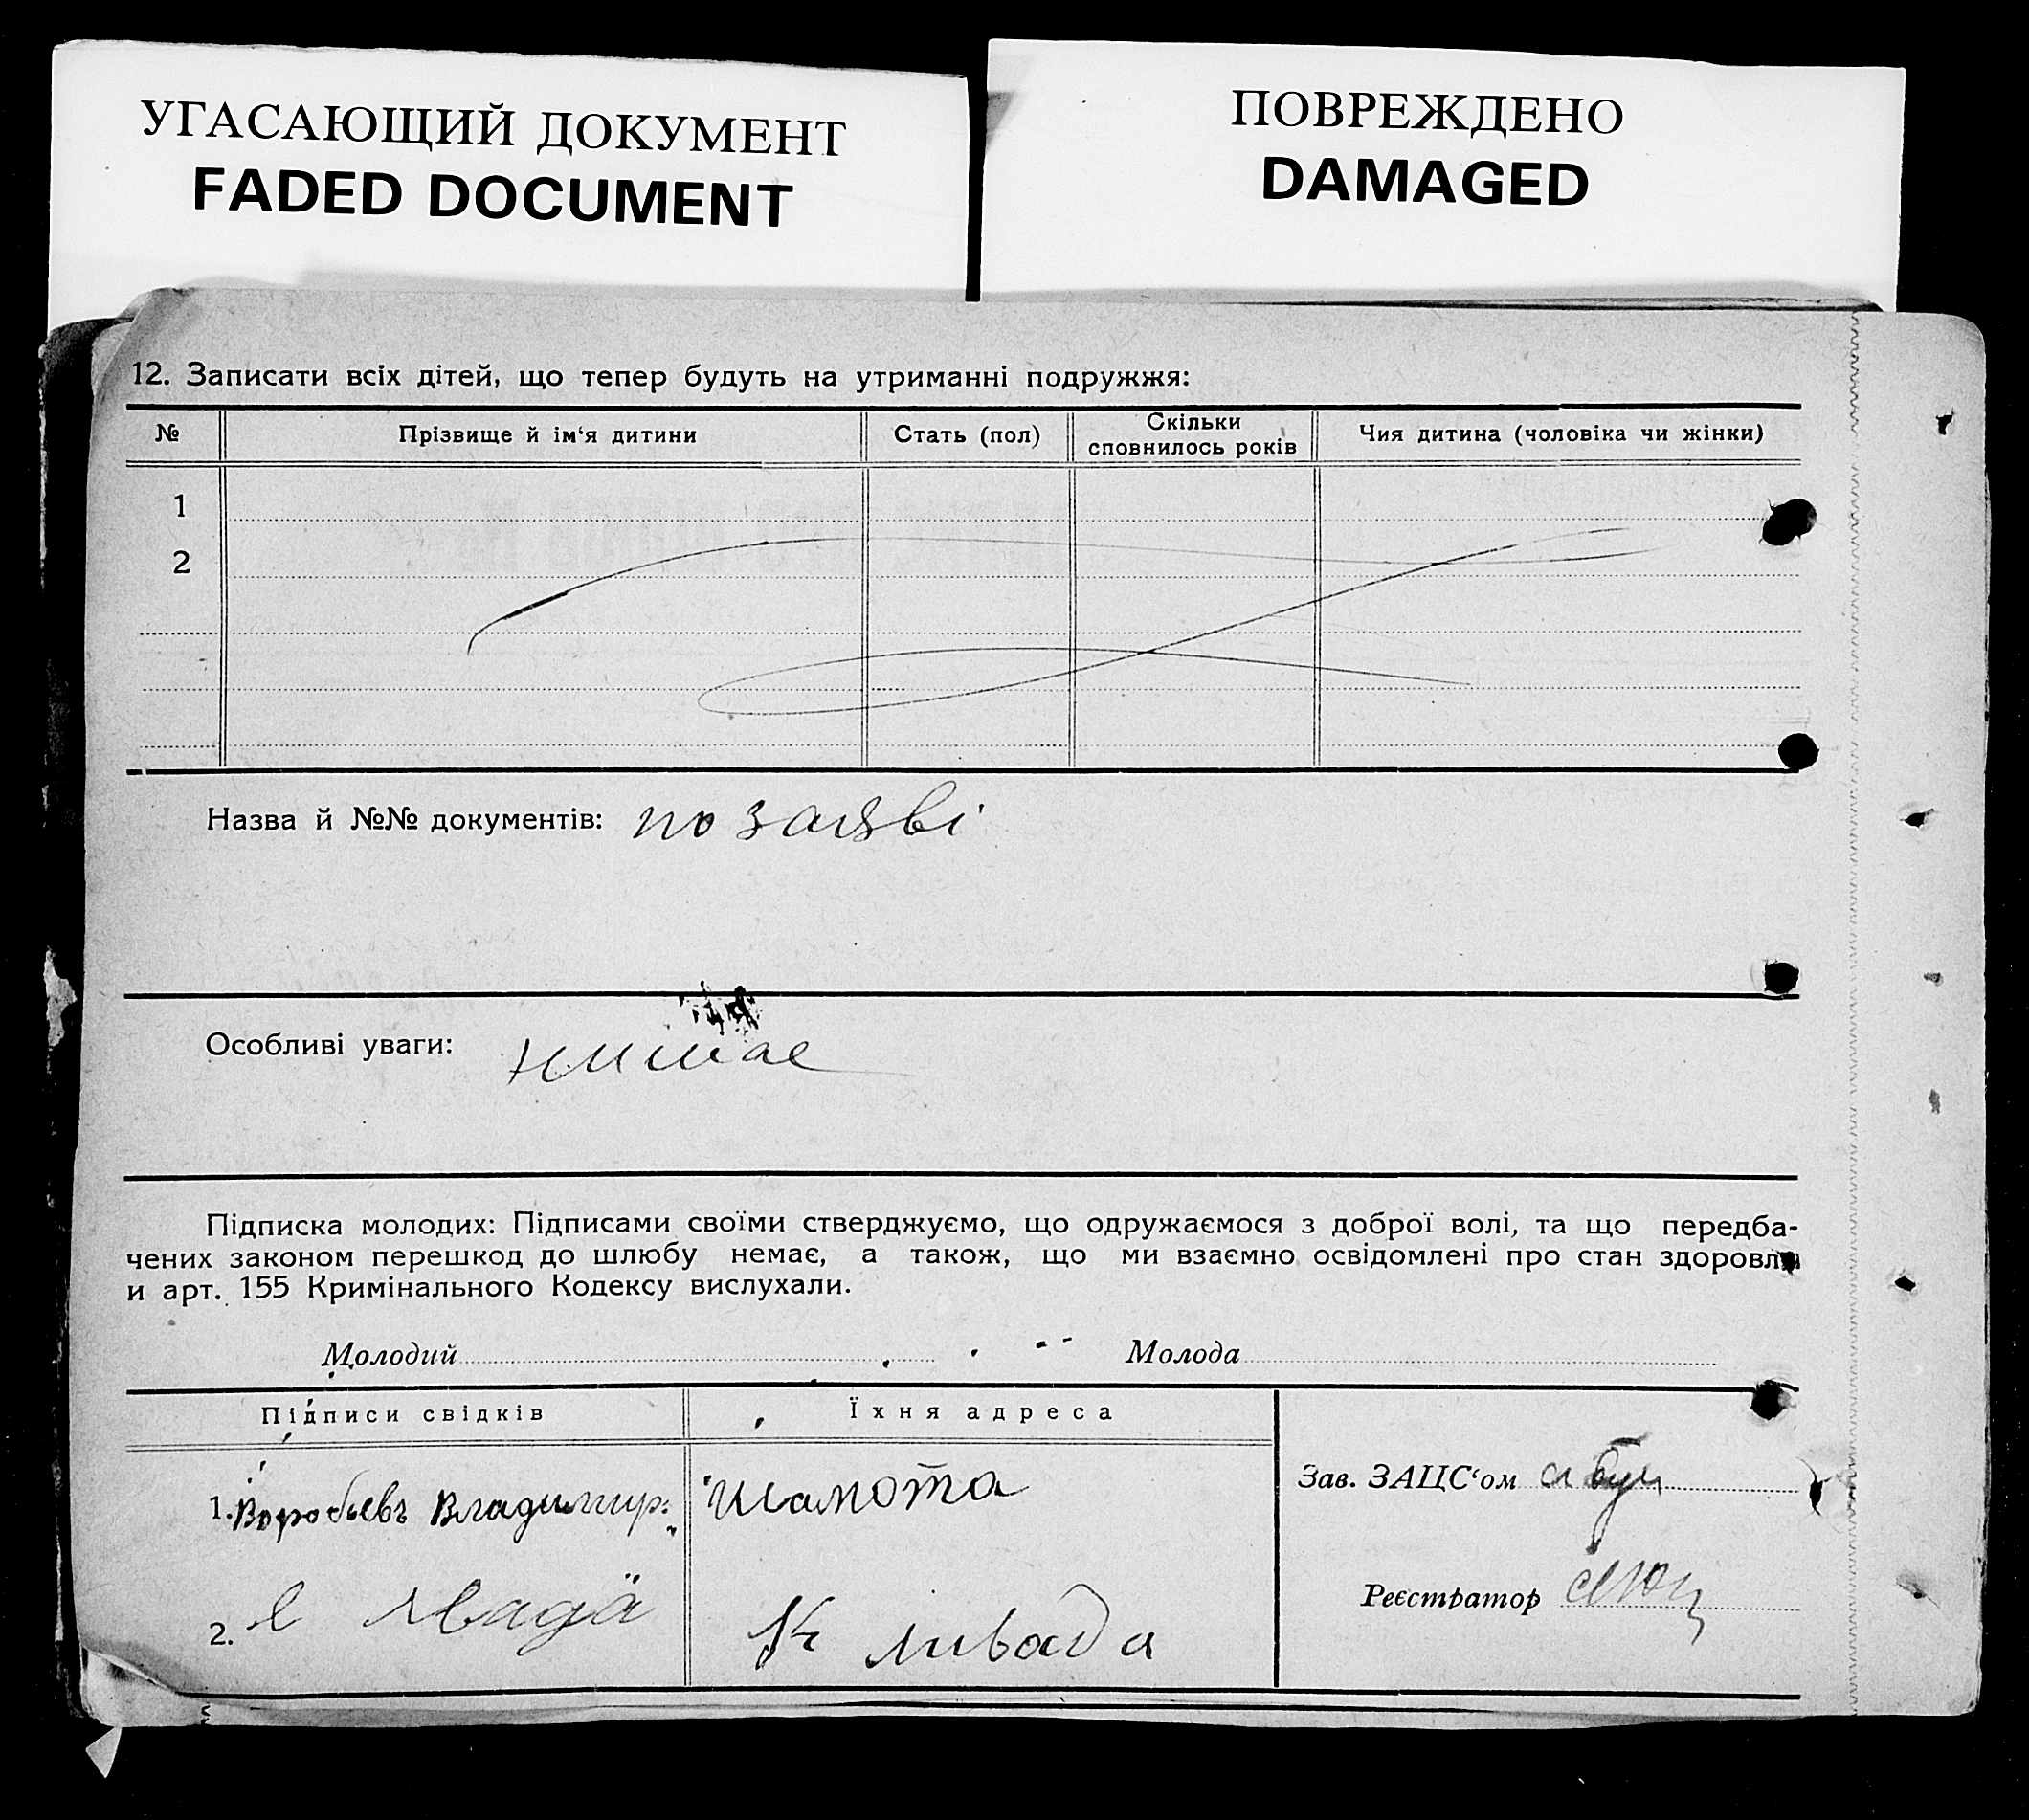 УГАСАЮЩИЙ ДОКУМЕНТ
FADED DOCUMENT
ПОВРЕЖДЕНО
DAMAGED
12. Записати всіх дітей, що тепер будуть на утриманні подружжя:
№ Прізвище й ім‘я дитини Стать (пол) Скільки сповнилось років Чия дитина (чоловіка чи жінки)
1
2
Назва й №№ документів: по заяві
Особливі уваги: нимае
Підписка молодих: Підписами своїми стверджуємо, що одружаємося з доброї волі, та що передба-
чених законом перешкод до шлюбу немає, а також, що ми взаємно освідомлені про стан здоровля
и арт. 155 Кримінального Кодексу вислухали.
Молодий Молода
Підписи свідків Їхня адреса
1. Воробьевъ Владимир: Шамота
Зав. ЗАЦС‘ом
2. К лівада
Реєстратор